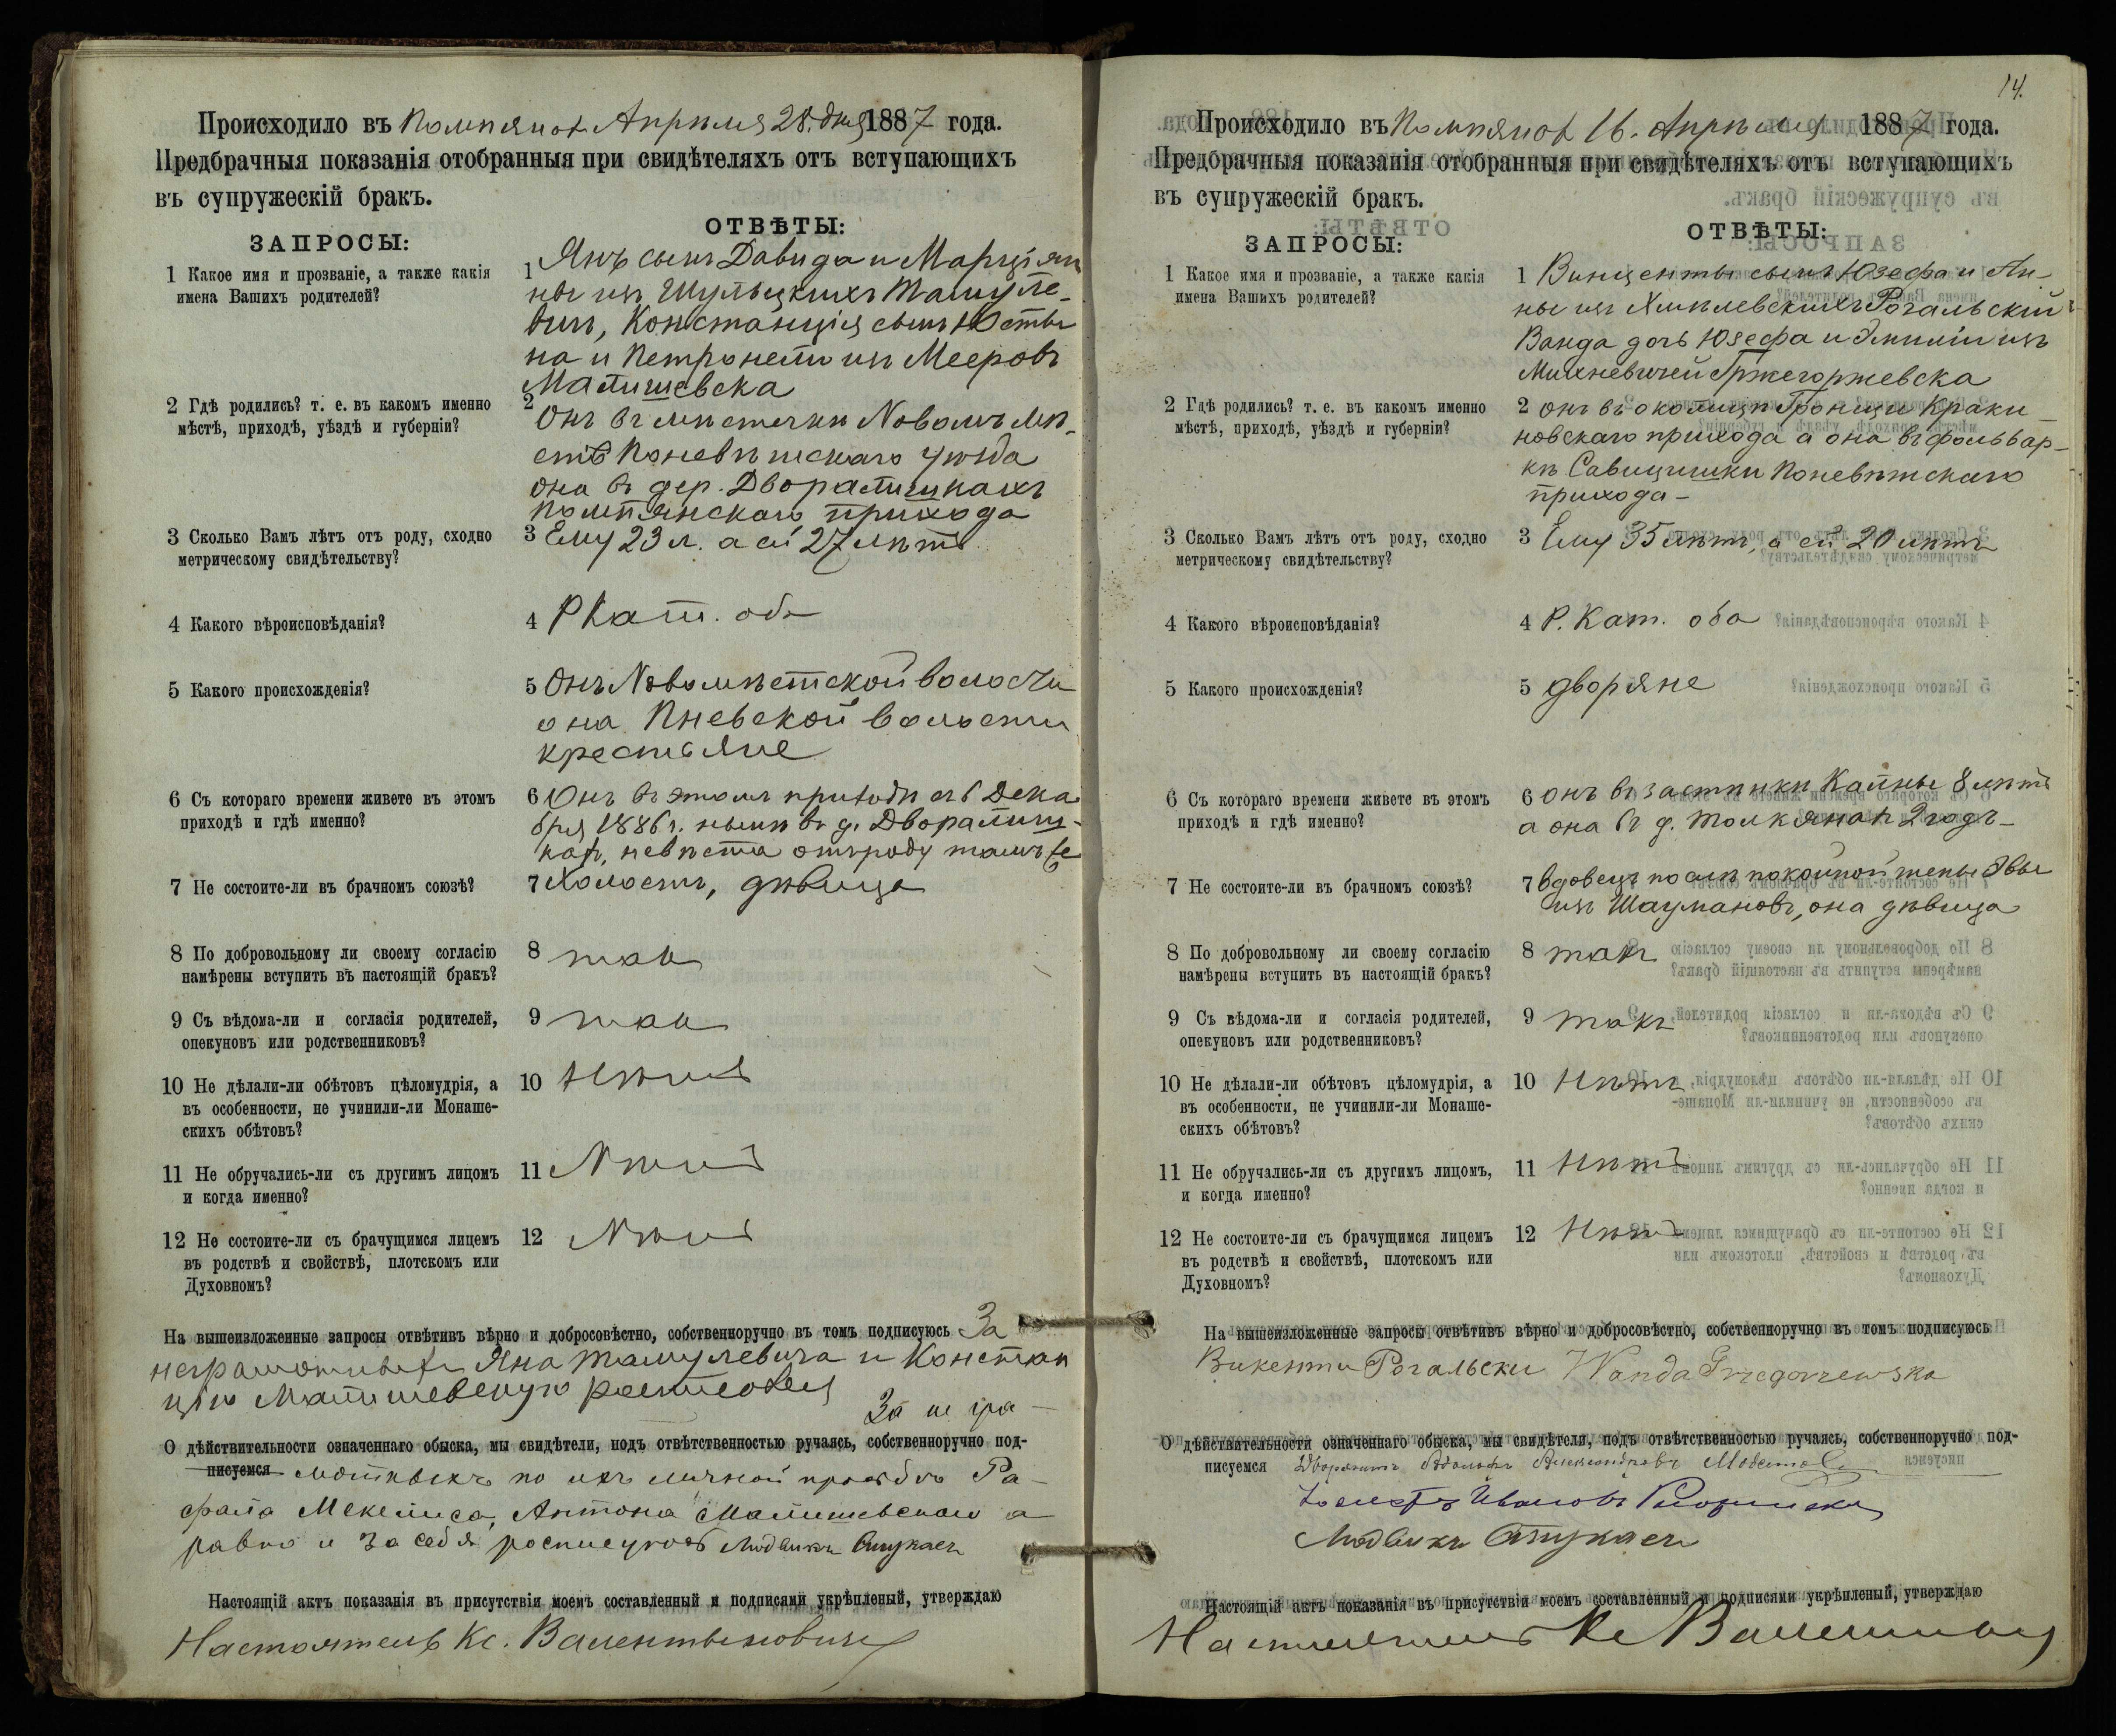 Происходило въ Помпянах Апрѣля 28. дня 1887 года.
Предбрачныя показанія отобранныя при свидѣтеляхъ отъ вступающихъ
въ супружескій бракъ.
ЗАПРОСЫ:
ОТВѢТЫ:
1 Какое имя и прозваніе, а также какія
имена Вашихъ родителей?
1 Янъ сынъ Давида и Марціян
ны изъ Шульцкихъ Тамуле-
вичъ, Константція сынъ Юсты
на и Петронели изъ Мееровъ
Малишевска
2 Гдѣ родились? т. е. въ какомъ именно
мѣстѣ, приходѣ, уѣздѣ и губерніи?
2 Онъ въ мѣстечки Новомъ мѣ-
стѣ Поневѣжскаго уѣзда
она въ дер. Дворалишкахъ
Помпянскаго прихода
3 Сколько Вамъ лѣтъ отъ роду, сходно
метрическому свидѣтельству?
3 Ему 23 л. а ей 27 лѣтъ
4 Какого вѣроисповѣданія?
4 Р Кат. оба
5 Какого происхожденія?
5 Онъ Новомѣстской волости
она Пневской волости
крестьяне
6 Съ котораго времени живете въ этомъ
приходѣ и гдѣ именно?
6 Онъ въ этомъ приходѣ съ 6 Дека
бря 1886 г. нынѣ въ д. Дворалиш-
ках, невѣста отъ роду тамъ же
7 Не состоите-ли въ брачномъ союзѣ?
7 Холостъ, дѣвица
8 По добровольному ли своему согласію
намѣрены вступить въ настоящій бракъ?
8 такъ
9 Съ вѣдома-ли и согласія родителей,
опекуновъ или родственниковъ?
9 такъ
10 Не дѣлали-ли обѣтовъ цѣломудрія, а
въ особенности, не учинили-ли Монаше-
скихъ обѣтовъ?
10 Нѣтъ
11 Не обручались-ли съ другимъ лицомъ
и когда именно?
11 Нѣтъ
12 Не состоите-ли съ брачущимся лицемъ
въ родствѣ и свойствѣ, плотскомъ или
Духовномъ?
12 Нѣтъ
На вышеизложенные запросы отвѣтивъ вѣрно и добросовѣстно, собственноручно въ томъ подписуюсь За
неграмотныхъ Яна Тамулевича и Констан
цію Малишевскую
За не гра-
О дѣйствительности означеннаго обыска, мы свидѣтели, подъ отвѣтственностью ручаясь, собственноручно под-
писуемся мотныхъ по ихъ личной просьбѣ Ра-
фала Мекелиса, Антона Малишевскаго а
равно и за себя росписуюсь Людвикъ
Настоящій актъ показанія въ присутствіи моемъ составленный и подписями укрѣпленый, утверждаю
Настоятель Кс. Валентыновичъ
14.
Происходило въ Помпянах 16. Апрѣля 1887 года.
Предбрачныя показанія отобранныя при свидѣтеляхъ отъ вступающихъ
въ супружескій бракъ.
ЗАПРОСЫ:
ОТВѢТЫ:
1 Какое имя и прозваніе, а также какія
имена Вашихъ родителей?
1 Винценты сынъ Юзефа и Ан-
ны изъ Хмѣлевскихъ Рогальскій
Ванда дочь Юзефа и Эмиліи изъ
Михневичей Гржегоржевска
2 Гдѣ родились? т. е. въ какомъ именно
мѣстѣ, приходѣ, уѣздѣ и губерніи?
2 онъ въ околицѣ Троници Краки-
новскаго прихода а она въ фольвар-
кѣ Савицишки Поневѣжскаго
прихода -
3 Сколько Вамъ лѣтъ отъ роду, сходно
метрическому свидѣтельству?
3 Ему 35 лѣтъ, а ей 20 лѣтъ
4 Какого вѣроисповѣданія?
4 Р. Кат. оба
5 Какого происхожденія?
5 дворяне
6 Съ котораго времени живете въ этомъ
приходѣ и гдѣ именно?
6 онъ въ застѣнки Кайны 8 лѣтъ
а она въ д. Толкянах 2 годъ -
7 Не состоите-ли въ брачномъ союзѣ?
7 вдовецъ послѣ покойной жены Эвы
изъ Шаумановъ, она дѣвица
8 По добровольному ли своему согласію
намѣрены вступить въ настоящій бракъ?
8 такъ
9 Съ вѣдома-ли и согласія родителей,
опекуновъ или родственниковъ?
9 такъ
10 Не дѣлали-ли обѣтовъ цѣломудрія, а
въ особенности, не учинили-ли Монаше-
скихъ обѣтовъ?
10 Нѣтъ
11 Не обручались-ли съ другимъ лицомъ,
и когда именно?
11 Нѣтъ
12 Не состоите-ли съ брачущимся лицемъ
въ родствѣ и свойствѣ, плотскомъ или
Духовномъ?
12 Нѣтъ
На вышеизложенные запросы отвѣтивъ вѣрно и добросовѣстно, собственноручно въ томъ подписуюсь
Викенти Рогальски Wanda Grzegorzewska
О дѣйствительности означеннаго обыска, мы свидѣтели, подъ отвѣтственностью ручаясь, собственноручно под-
писуемся Дворянинъ Адольфъ Александровъ
Ивановъ
Людвикъ
Настоящій актъ показанія въ присутствіи моемъ составленный и подписями укрѣпленый, утверждаю
Настоятель Кс